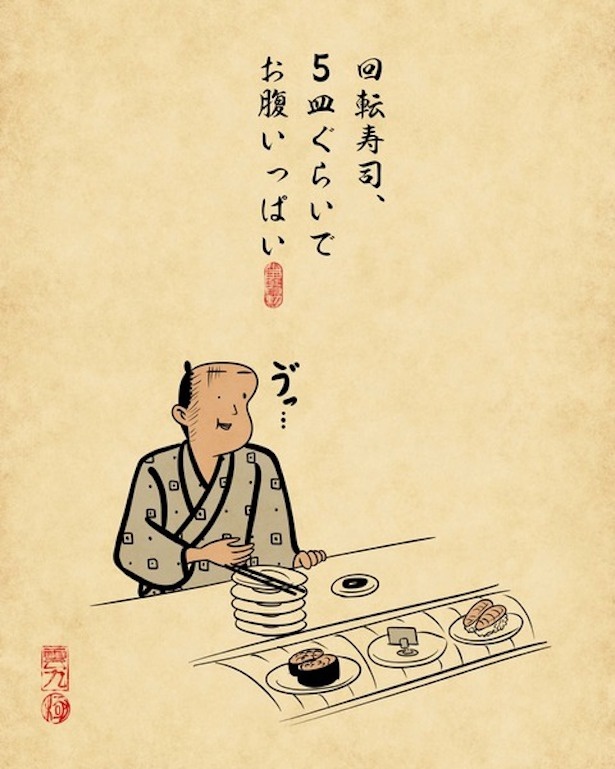 回転寿司、
5皿ぐらいで
お腹いっぱい
ゔっ…